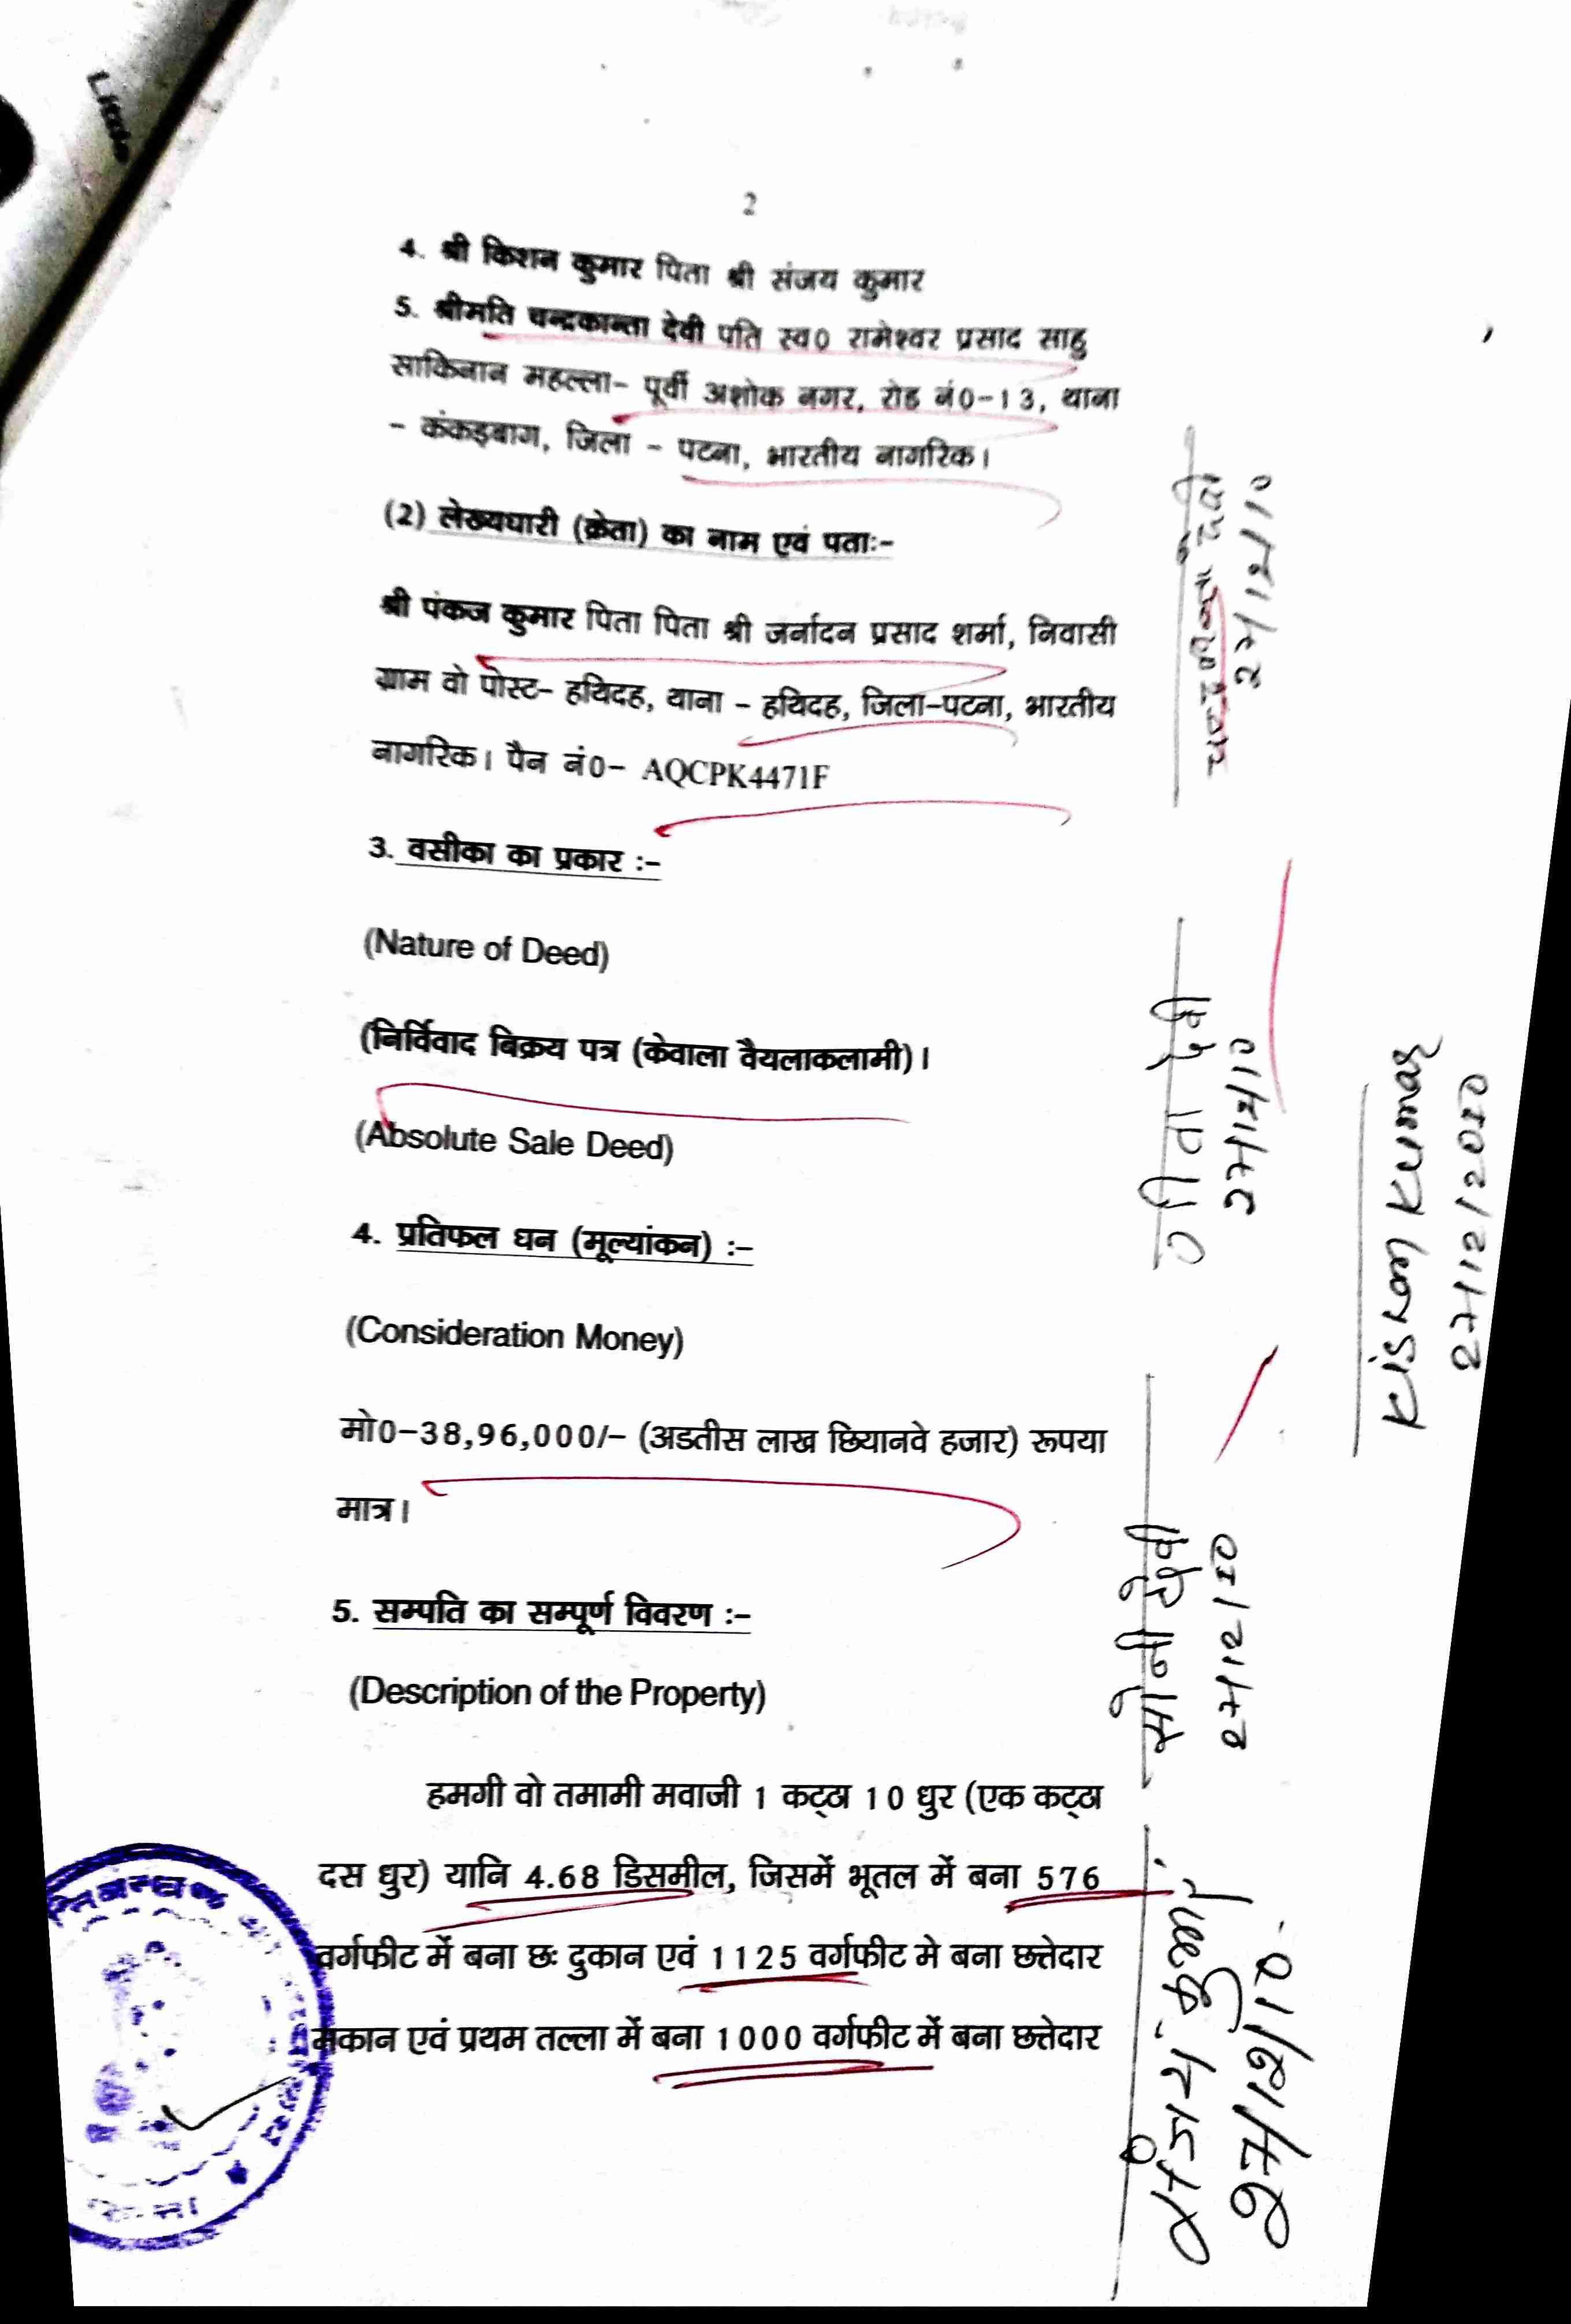 2
4. श्री किशन कुमार पिता श्री संजय कुमार
5. श्रीमति चन्द्रकान्ता देवी पति स्व0 रामेश्वर प्रसाद साहु
साकिनान महल्ला- पूर्वी अशोक नगर, रोड नं0-13, थाना
- कंकड़बाग, जिला - पटना, भारतीय नागरिक।
(2) लेख्यधारी (क्रेता) का नाम एवं पताः-
श्री पंकज कुमार पिता पिता श्री जर्नादन प्रसाद शर्मा, निवासी
ग्राम वो पोस्ट- हथिदह, थाना - हथिदह, जिला-पटना, भारतीय
नागरिक। पैन नं0- AQCPK4471F
3. वसीका का प्रकार :-
(Nature of Deed)
(निर्विवाद बिक्रय पत्र (केवाला वैयलाकलामी)।
(Absolute Sale Deed)
4. प्रतिफल धन (मूल्यांकन) :-
(Consideration Money)
मो0-38,96,000/- (अडतीस लाख छियानवे हजार) रूपया
मात्र।
5. सम्पति का सम्पूर्ण विवरण :-
(Description of the Property)
हमगी वो तमामी मवाजी 1 कट्ठा 10 धुर (एक कट्ठा
दस धुर) यानि 4.68 डिसमील, जिसमें भूतल में बना 576
वर्गफीट में बना छः दुकान एवं 1125 वर्गफीट मे बना छत्तेदार
मकान एवं प्रथम तल्ला में बना 1000 वर्गफीट में बना छत्तेदार
देवी
सोनी देवी
संजय कुमार